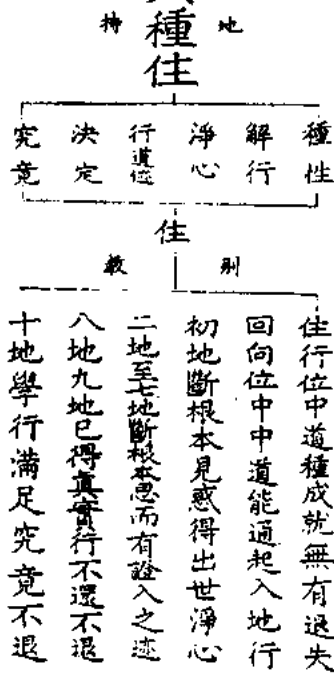 地持
種住
種性
解行
淨心
行道迹
決定
究竟
住
別教
住行位中道種成就無有退失
回向位中中道能通起入地行
初地斷根本見惑得出世淨心
二地至七地斷根本思而有證入之迹
八地九地已得真實行不還不退
十地學行滿足究竟不退